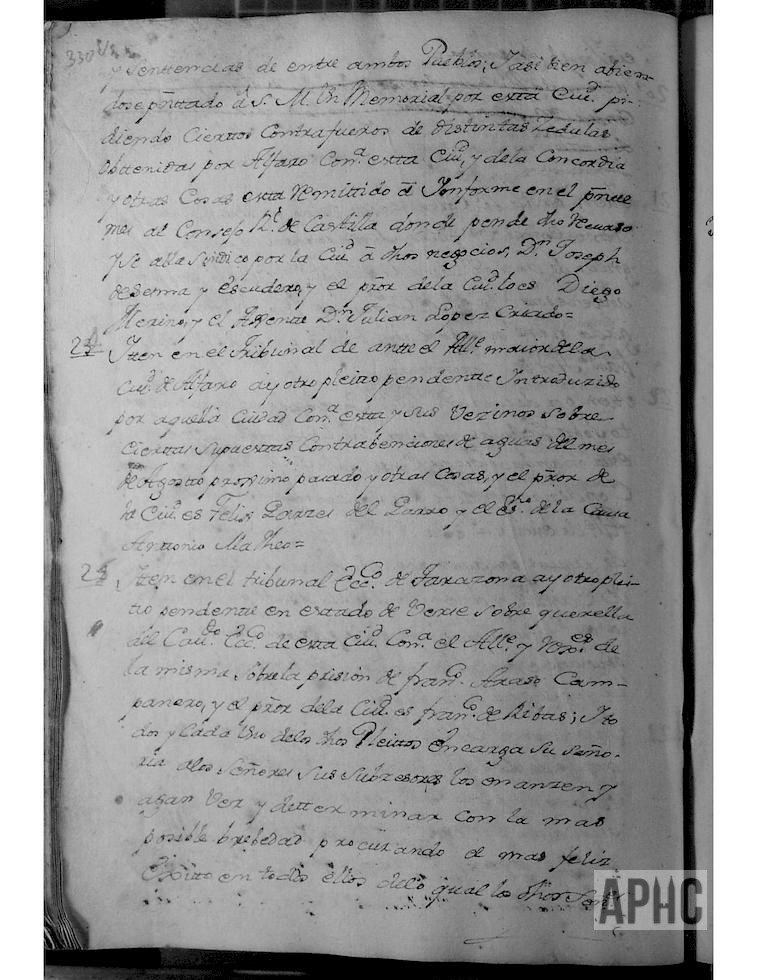 330 V.
y Senttencias de entre ambos Pueblos; Y asi bien abien-
dose pñttado â S. M. Un Memorial por esta Ciu.d pi-
diendo Ciertos Contrafueros de distintas Zedulas
obttenidas por Alfaro Con.a estta Ciu.d, y de la Concordia
y otras Cosas esta Remittido â Informe en el pñtte
mes al Consejo R.l de Castilla donde pende dho Recurso
Y se alla Sindico por la Ciu.d â dhos negocios, D.n Joseph
de Sesma y Escudero, y el pr̃or de la Ciu.d lo es Diego
Merino, y el Agente D.n Julian Lopez Criado=
23 Itten en el Tribunal de antte el Alle. maior de la
Ciu.d de Alfaro ay otro pleitto pendentte Introduzido
por aquella Ciudad Con.a estta y sus Vezinos sobre
Ciertas supuesttas Contrabenciones de aguas del mes
de Agostto proximo pasado y otras Cosas, y el pr̃or de
la Ciu.d es Felix del y el Es.no de la Causa
Anttonio Matheo=
24 Itten en el tribunal Ecc.o de Tarazona ay otro plei-
tto pendentte en estado de Verse sobre querella
del Cau.do Ecc.o de esta Ciu.d Con.a el Alle. y Rex.es de
la misma sobre la prision de fran.co Araso Cam-
panero, y el pr̃or de la Ciu.d es fran.co de Ribas; Y to
dos y Cada Uno de los dhos Pleittos encarga Su Seño-
ria a los Señores sus subzesores los abanzen y
agan Ver y detterminar con la mas
posible brebedad procurando el mas feliz
Exitto en todos ellos de lo qual los dhos Señ.es
APHC